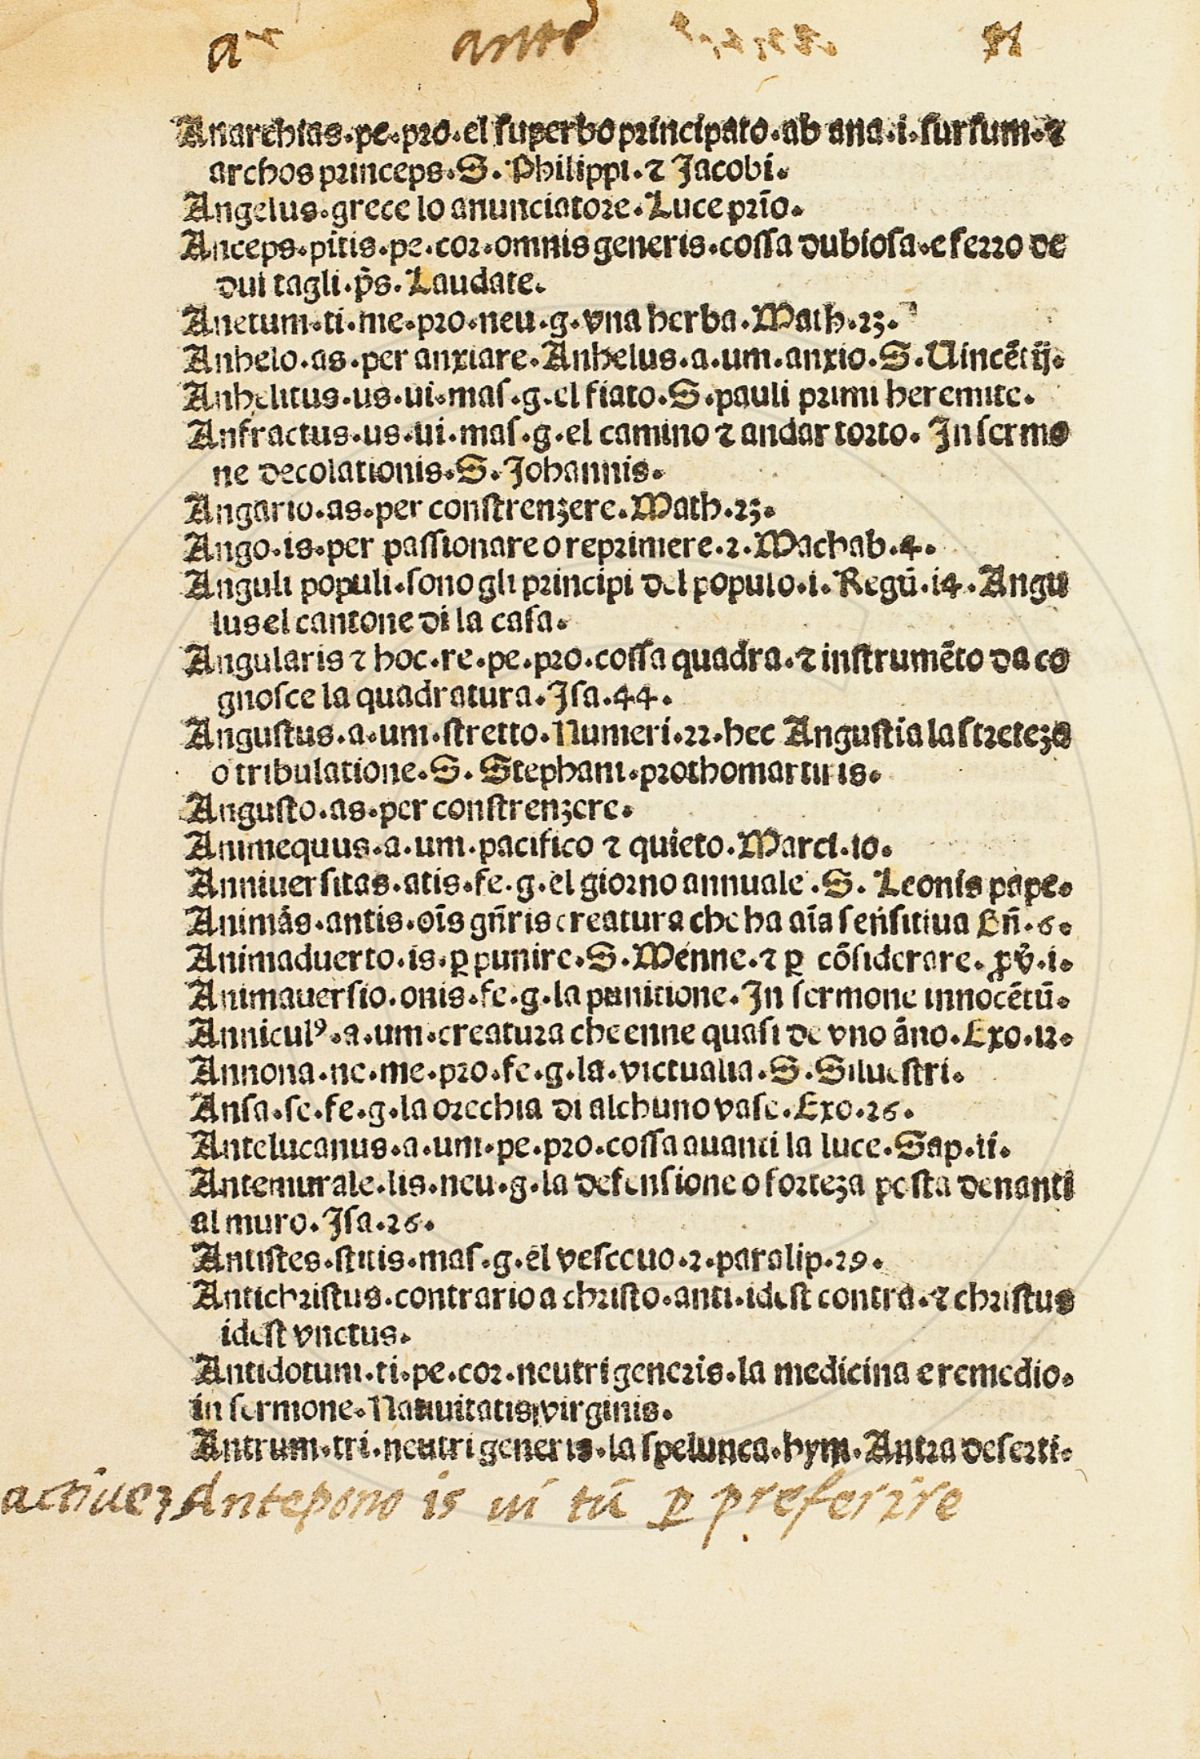 ante
Anarchias·pe·pro·el ſuperbo principato·ab ana·i·ſurſum·⁊
archos princeps·S·Philippi·⁊ Jacobi·
Angelus·grece lo anunciatore·Luce prīo·
Anceps·pitis·pe·cor·omnis generis·coſſa dubioſa·e ferro de
dui tagli·p̄s·Laudate·
Anetum·ti·me·pro·neu·g·vna herba·Math·23·
Anhelo·as·per anxiare·Anhelus·a·um·anxio·S·Uincētij·
Anhelitus·us·ui·maſ·g·el fiato·S·pauli primi heremite·
Anfractus·us·ui·maſ·g·el camino ⁊ andar torto·Jn ſermo
ne decolationis·S·Johannis·
Angario·as·per conſtrenzere·Math·23·
Ango·is·per paſſionare o reprimere·2·Machab·4·
Anguli populi·ſono gli principi del populo·i·Regū·14·Angu
lus el cantone di la caſa·
Angularis ⁊ hoc·re·pe·pro·coſſa quadra·⁊ inſtrumēto da co
gnoſce la quadratura·Jſa·44·
Anguſtus·a·um·ſtretto·Numeri·22·hec Anguſtia la ſtreteza
o tribulatione·S·Stephani·prothomartiris·
Anguſto·as·per conſtrenzere·
Animequus·a·um·pacifico ⁊ quieto·Marci·10·
Anniuerſitas·atis·fe·g·el giorno annuale·S·Leonis pape·
Animās·antis·oīs gn̄ris creatura che ha aīa ſenſitiua Gn̄·6·
Animaduerto·is·ꝑ punire·S·Menne·⁊ ꝑ cōſiderare·ꝓv̄·i·
Animauerſio·onis·fe·g·la punitione·Jn ſermone innocētū·
Annicul⁹·a·um·creatura che enne quaſi de vno āno·Exo·12·
Annona·ne·me·pro·fe·g·la·victualia·S·Silueſtri·
Anſa·ſe·fe·g·la orechia di alchuno vaſe·Exo·26·
Antelucanus·a·um·pe·pro·coſſa auanti la luce·Sap·ii·
Antemurale·lis·neu·g·la defenſione o forteza poſta denanti
al muro·Jſa·26·
Antiſtes·ſtitis·maſ·g·el veſcouo·2·paralip·29·
Antichriſtus·contrario a chriſto·anti·ideſt contra·⁊ chriſtus
ideſt vnctus·
Antidotum·ti·pe·cor·neutri generis·la medicina e remedio·
in ſermone·Natiuitatis virginis·
Antrum·tri·neutri generis·la ſpelunca·hym·Antra deſerti·
Antepono is ui tū ꝑ preferire